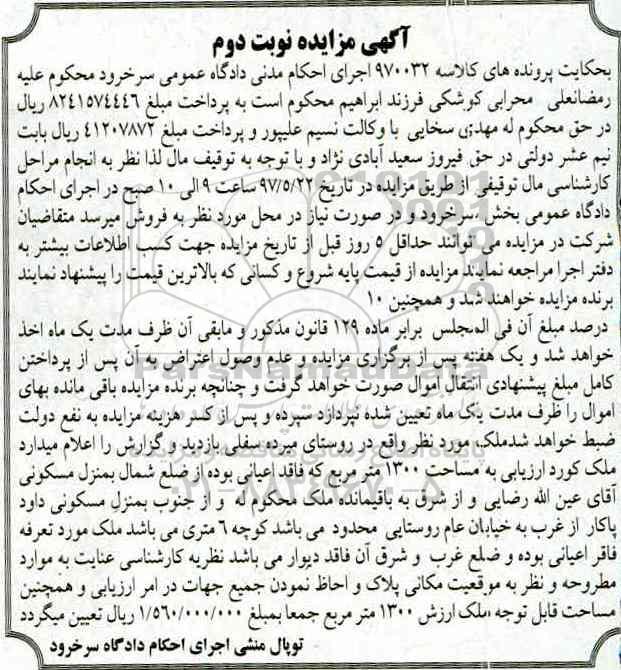 آگهی مزایده نوبت دوم
بحکایت پرونده های کالاسه ۹۷۰۰۳۲ اجرای احکام مدنی دادگاه عمومی سرخرود محکوم علیه
رمضانعلی محرابی کوشکی فرزند ابراهیم محکوم است به پرداخت مبلغ ۸۲٤۱۵۷٤٤٤٦ ریال
در حق محکوم له مهدی سخایی با وکالت نسیم علیپور و پرداخت مبلغ ٤۱۲۰۷۸۷۲ ریال بابت
نیم عشر دولتی در حق فیروز سعید آبادی نژاد و با توجه به توقیف مال لذا نظر به انجام مراحل
کارشناسی مال توقیفی از طریق مزایده در تاریخ ۹۷/۵/۲۲ ساعت ۹ الی ۱۰ صبح در اجرای احکام
دادگاه عمومی بخش سرخرود و در صورت نیاز در محل مورد نظر به فروش میرسد متقاضیان
شرکت در مزایده می توانند حداقل ۵ روز قبل از تاریخ مزایده جهت کسب اطلاعات بیشتر به
دفتر اجرا مراجعه نمایند مزایده از قیمت پایه شروع و کسانی که بالاترین قیمت را پیشنهاد نمایند
برنده مزایده خواهند شد و همچنین ۱۰
درصد مبلغ آن فی المجلس برابر ماده ۱۲۹ قانون مذکور و مابقی آن ظرف مدت یک ماه اخذ
خواهد شد و یک هفته پس از برگزاری مزایده و عدم وصول اعتراض به آن پس از پرداختن
کامل مبلغ پیشنهادی انتقال اموال صورت خواهد گرفت و چنانچه برنده مزایده باقی مانده بهای
اموال را ظرف مدت یک ماه تعیین شده نپردازد سپرده و پس از کسر هزینه مزایده به نفع دولت
ضبط خواهد شدملک مورد نظر واقع در روستای میرده سفلی بازدید و گزارش را اعلام میدارد
ملک کورد ارزیابی به مساحت ۱۳۰۰ متر مربع که فاقد اعیانی بوده از ضلع شمال بمنزل مسکونی
آقای عین الله رضایی و از شرق به باقیمانده ملک محکوم له و از جنوب بمنزل مسکونی داود
پاکار از غرب به خیابان عام روستایی محدود می باشد کوچه ٦ متری می باشد ملک مورد تعرفه
فاقر اعیانی بوده و ضلع غرب و شرق آن فاقد دیوار می باشد نظریه کارشناسی عنایت به موارد
مطروحه و نظر به موقعیت مکانی پلاک و احاظ نمودن جمیع جهات در امر ارزیابی و همچنین
مساحت قابل توجه ملک ارزش ۱۳۰۰ متر مربع جمعا بمبلغ ۱/۵٦۰/۰۰۰/۰۰۰ ریال تعیین میگردد
توپال منشی اجرای احکام دادگاه سرخرود
ParsNamadData
۰۲۱-۸۸۳٤۹٦۷۰-۵